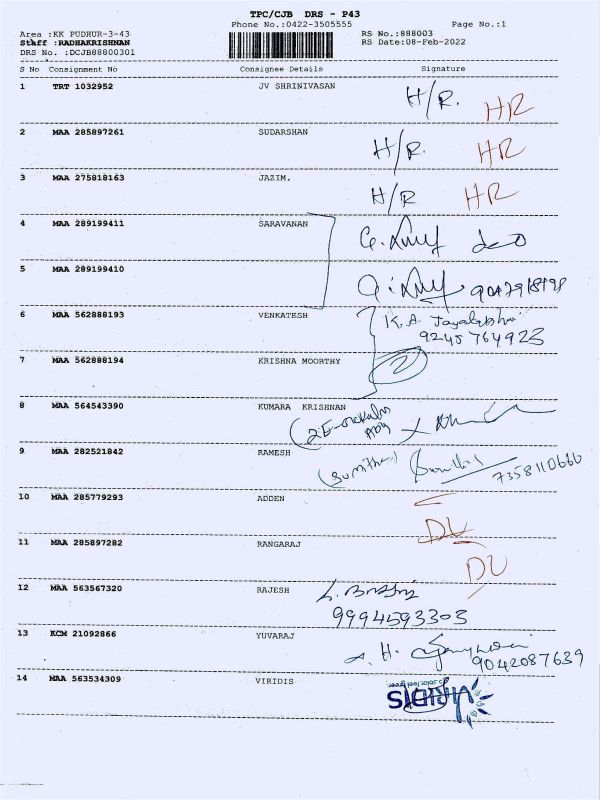 TPC/CJB DRS - P43
Phone No.:0422-3505555 Page No.:1
Area :KK PUDHUR-3-43 RS No.:888003
Staff :RADHAKRISHNAN RS Date:08-Feb-2022
DRS No. :DCJB88800301
S No Consignment No Consignee Details Signature
1 TRT 1032952 JV SHRINIVASAN H/R. HR
2 MAA 285897261 SUDARSHAN H/R. HR
3 MAA 275818163 JAZIM. H/R HR
4 MAA 289199411 SARAVANAN
5 MAA 289199410
6 MAA 562888193 VENKATESH K.A.
9245764923
7 MAA 562888194 KRISHNA MOORTHY 2
8 MAA 564543390 KUMARA KRISHNAN
9 MAA 282521842 RAMESH
7358110666
10 MAA 285779293 ADDEN DL
11 MAA 285897282 RANGARAJ DU
12 MAA 563567320 RAJESH
9994593303
13 KCM 21092866 YUVARAJ
9042087639
14 MAA 563534309 VIRIDIS VIRIDIS